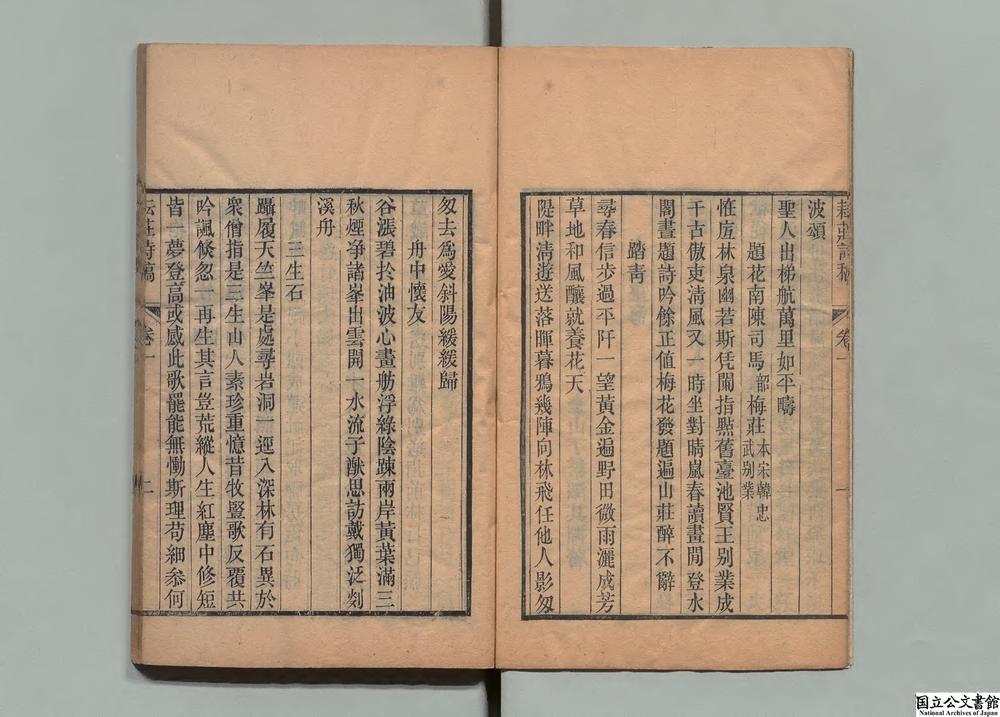 耘莊詩稿 卷 一
波頌
聖人出梯航萬里如平疇
題花南陳司馬韶梅莊 本宋韓忠
武别業
恠庢林泉幽若斯凭闌指點舊臺池賢王别業成
千古傲吏清風又一時坐對晴嵐春讀畫閒登水
閣晝題詩吟餘正值梅花發題遍山莊醉不辭
踏靑
尋春信步過平阡一望黃金遍野田微雨灑成芳
草地和風釀就養花天
隄畔淸遊送落暉暮鴉幾陣向林飛任他人影匆
匆去爲愛斜陽緩緩歸
舟中懷友
谷漲碧扵油波心畫舫浮綠陰踈兩岸黃葉滿三
秋煙净諸峯出雲開一水流于猷思訪戴獨泛剡
溪舟
三生石
躡履天竺峯是處尋岩洞一逕入深林有石異於
衆僧指是三生山人素珍重憶昔牧豎歌反覆共
吟諷倐忽一再生其言豈荒縱人生紅塵中修短
皆一夢登高或感此歌罷能無慟斯理苟細叅何
耘莊詩稿 卷一 二
国立公文書館
National Archives of Japan